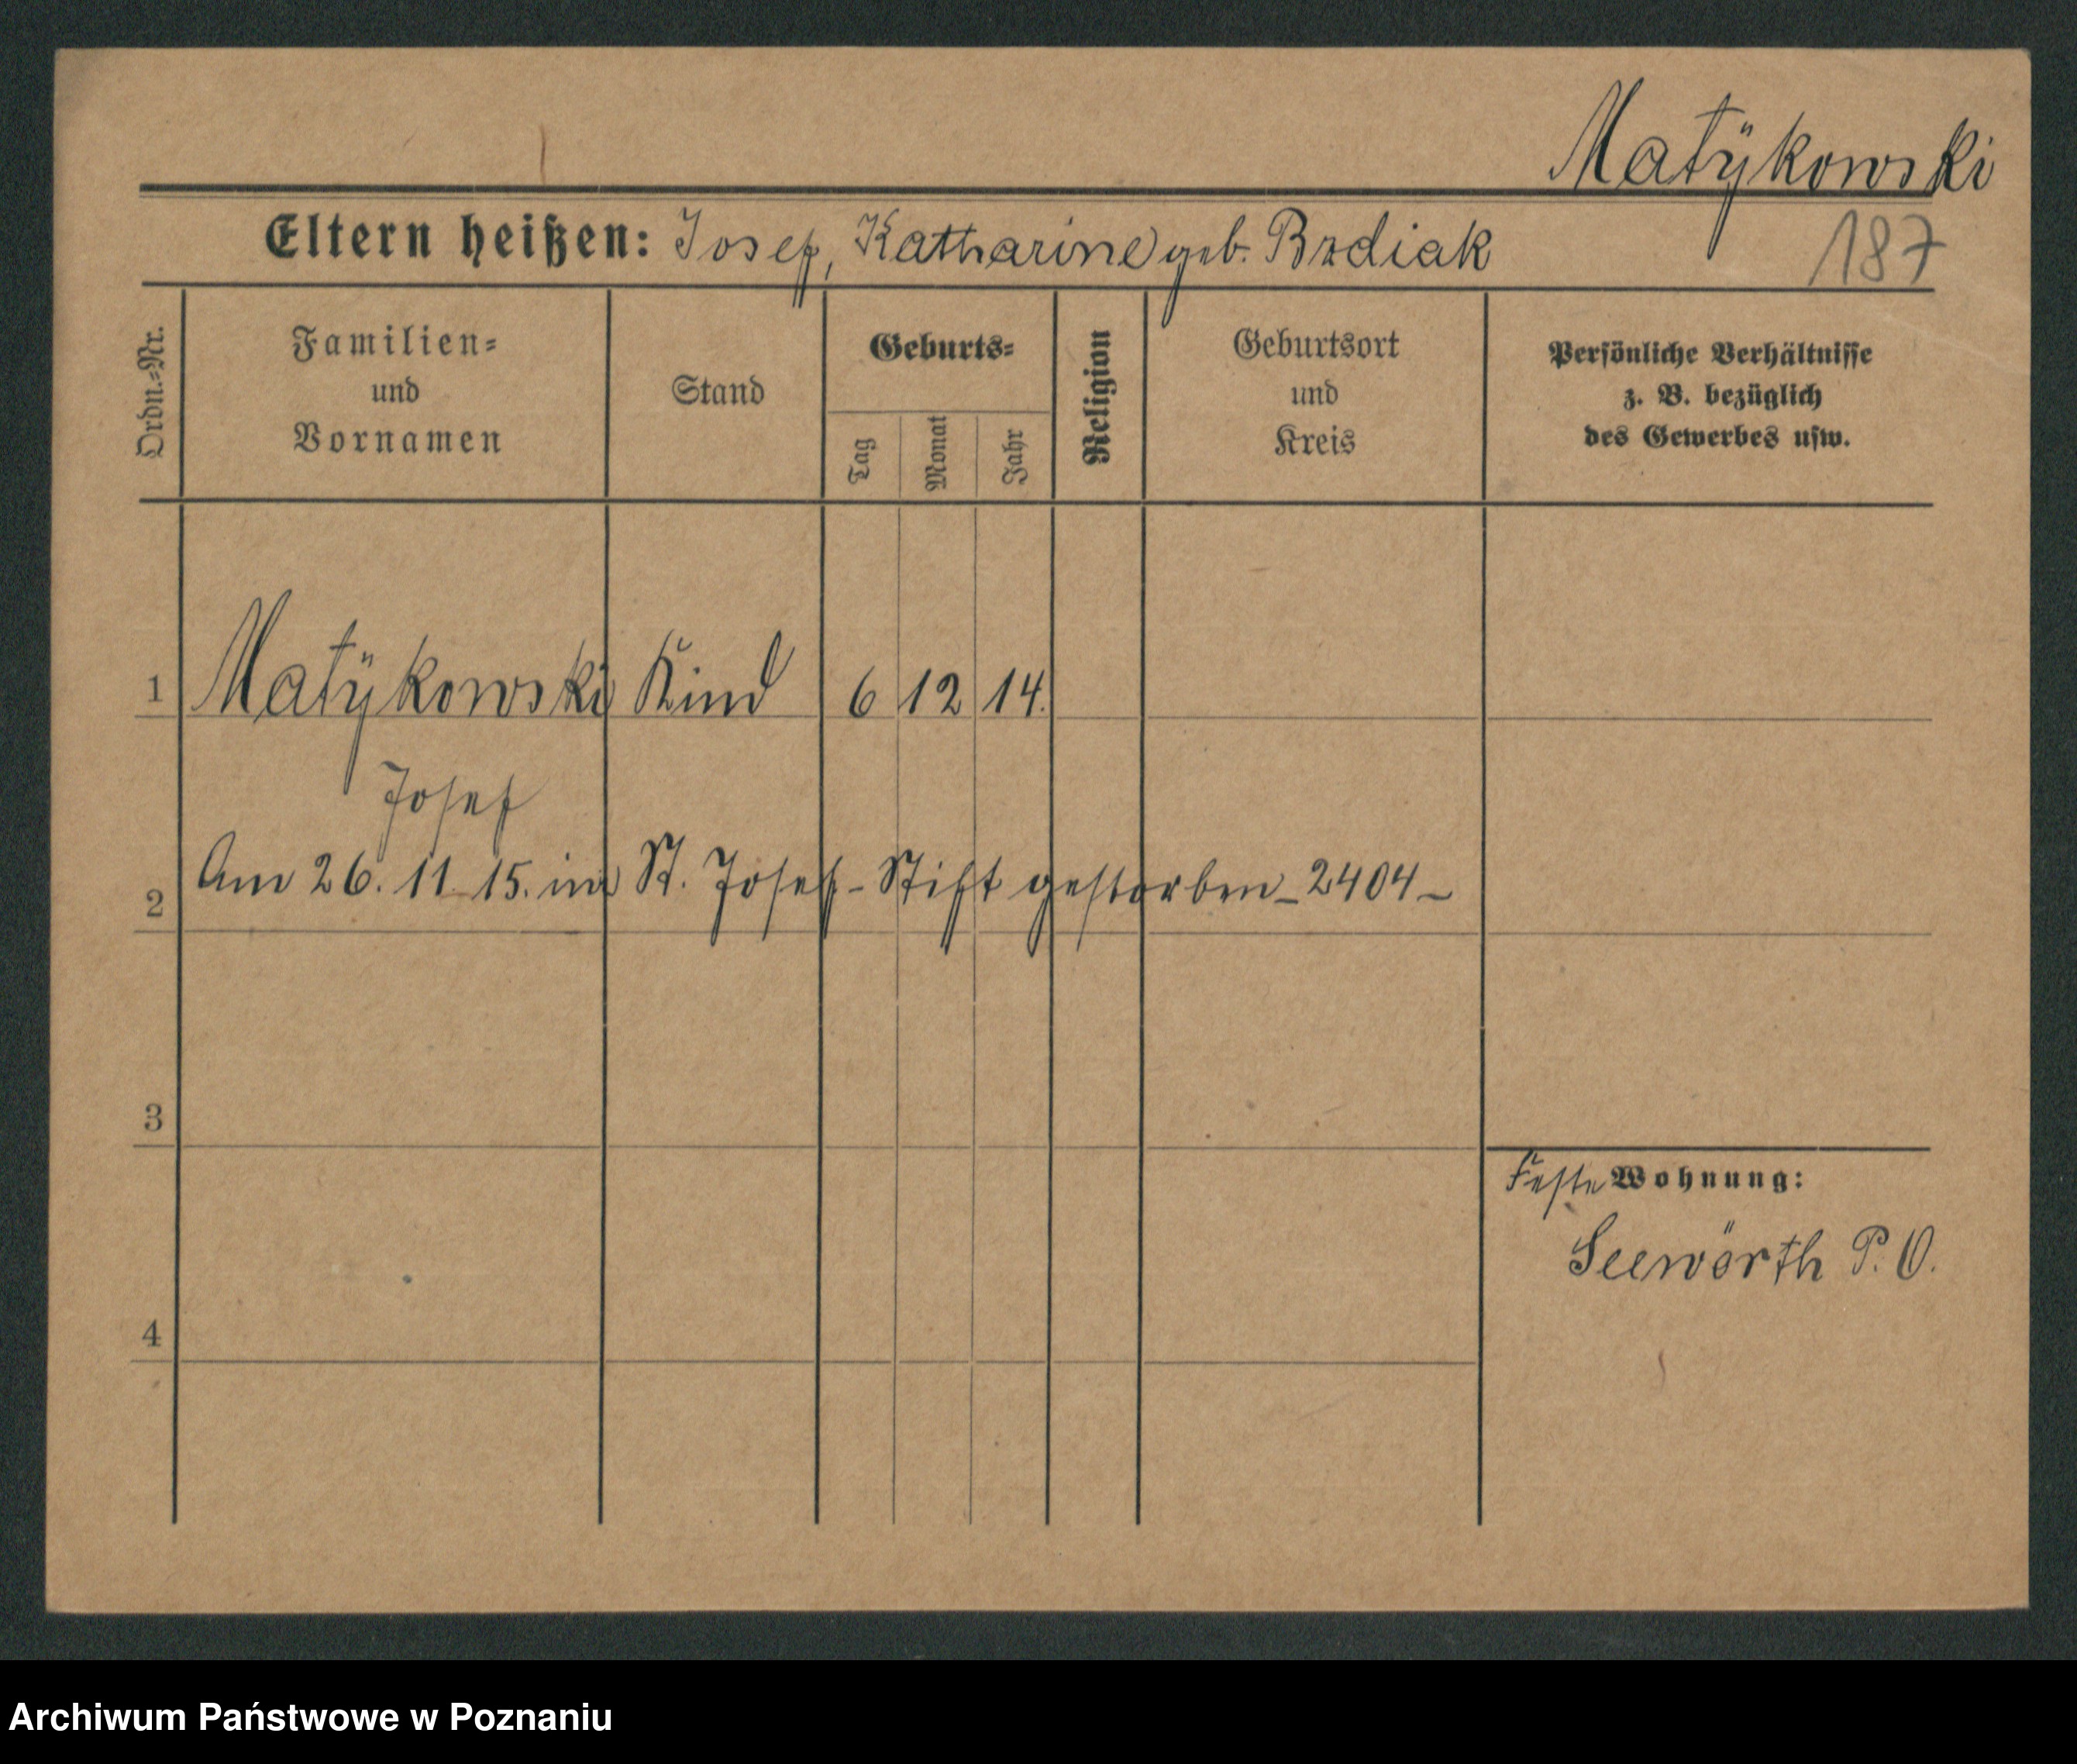 Matÿkowski
187
Eltern heißen: Josef, Katharine geb. Brdiak
Ordn.-Nr.
Familien-
und
Vornamen
Stand
Geburts-
Tag
Monat
Jahr
Religion
Geburtsort
und
Kreis
Persönliche Verhältnisse
z. B. bezüglich
des Gewerbes usw.
1 Matÿkowski Kind 6 12 14.
Josef
2 Am 26. 11. 15. im St. Josef-Stift gestorben - 2404 -
3
Feste Wohnung:
Seewörth P. O.
4
Archiwum Państwowe w Poznaniu